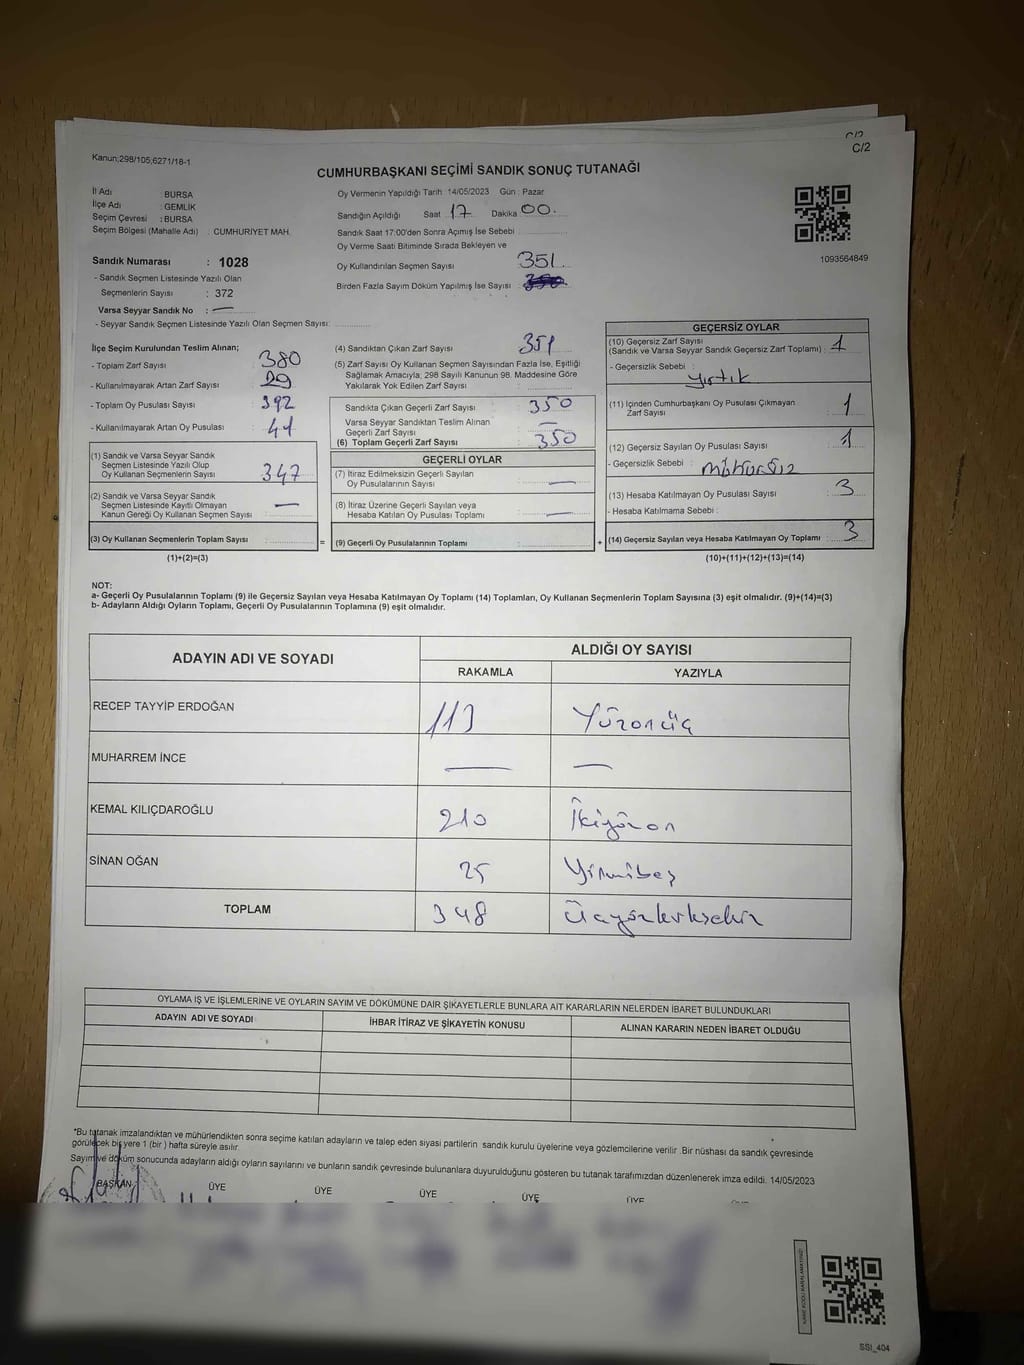 C/2
C/2
Kanun;298/105;6271/18-1
CUMHURBAŞKANI SEÇİMİ SANDIK SONUÇ TUTANAĞI
İl Adı : BURSA
İlçe Adı : GEMLİK
Seçim Çevresi : BURSA
Seçim Bölgesi (Mahalle Adı) : CUMHURİYET MAH.
Oy Vermenin Yapıldığı Tarih : 14/05/2023 Gün : Pazar
Sandığın Açıldığı Saat 17 Dakika 00
Sandık Saat 17:00'den Sonra Açımış İse Sebebi
Oy Verme Saati Bitiminde Sırada Bekleyen ve
Oy Kullandırılan Seçmen Sayısı 351
Birden Fazla Sayım Döküm Yapılmış İse Sayısı
1093564849
Sandık Numarası : 1028
- Sandık Seçmen Listesinde Yazılı Olan
Seçmenlerin Sayısı : 372
Varsa Seyyar Sandık No : —
- Seyyar Sandık Seçmen Listesinde Yazılı Olan Seçmen Sayısı:
İlçe Seçim Kurulundan Teslim Alınan;
- Toplam Zarf Sayısı : 380
- Kullanılmayarak Artan Zarf Sayısı : 29
- Toplam Oy Pusulası Sayısı : 392
- Kullanılmayarak Artan Oy Pusulası : 41
(1) Sandık ve Varsa Seyyar Sandık
Seçmen Listesinde Yazılı Olup
Oy Kullanan Seçmenlerin Sayısı : 347
(2) Sandık ve Varsa Seyyar Sandık
Seçmen Listesinde Kayıtlı Olmayan
Kanun Gereği Oy Kullanan Seçmen Sayısı : —
(3) Oy Kullanan Seçmenlerin Toplam Sayısı :
(1)+(2)=(3)
(4) Sandıktan Çıkan Zarf Sayısı : 351
(5) Zarf Sayısı Oy Kullanan Seçmen Sayısından Fazla İse, Eşitliği
Sağlamak Amacıyla; 298 Sayılı Kanunun 98. Maddesine Göre
Yakılarak Yok Edilen Zarf Sayısı :
Sandıkta Çıkan Geçerli Zarf Sayısı : 350
Varsa Seyyar Sandıktan Teslim Alınan
Geçerli Zarf Sayısı : —
(6) Toplam Geçerli Zarf Sayısı : 350
GEÇERLİ OYLAR
(7) İtiraz Edilmeksizin Geçerli Sayılan
Oy Pusulalarının Sayısı : —
(8) İtiraz Üzerine Geçerli Sayılan veya
Hesaba Katılan Oy Pusulası Toplamı : —
= (9) Geçerli Oy Pusulalarının Toplamı : +
GEÇERSİZ OYLAR
(10) Geçersiz Zarf Sayısı
(Sandık ve Varsa Seyyar Sandık Geçersiz Zarf Toplamı) : 1
- Geçersizlik Sebebi : yırtık
(11) İçinden Cumhurbaşkanı Oy Pusulası Çıkmayan
Zarf Sayısı : 1
(12) Geçersiz Sayılan Oy Pusulası Sayısı : 1
- Geçersizlik Sebebi : mühürsüz
(13) Hesaba Katılmayan Oy Pusulası Sayısı : 3
- Hesaba Katılmama Sebebi :
(14) Geçersiz Sayılan veya Hesaba Katılmayan Oy Toplamı : 3
(10)+(11)+(12)+(13)=(14)
NOT:
a- Geçerli Oy Pusulalarının Toplamı (9) ile Geçersiz Sayılan veya Hesaba Katılmayan Oy Toplamı (14) Toplamları, Oy Kullanan Seçmenlerin Toplam Sayısına (3) eşit olmalıdır. (9)+(14)=(3)
b- Adayların Aldığı Oyların Toplamı, Geçerli Oy Pusulalarının Toplamına (9) eşit olmalıdır.
ADAYIN ADI VE SOYADI
ALDIĞI OY SAYISI
RAKAMLA YAZIYLA
RECEP TAYYİP ERDOĞAN 113 Yüzonüç
MUHARREM İNCE — —
KEMAL KILIÇDAROĞLU 210 İkiyüzon
SİNAN OĞAN 25 Yirmibeş
TOPLAM 348 Üçyüzkırksekiz
OYLAMA İŞ VE İŞLEMLERİNE VE OYLARIN SAYIM VE DÖKÜMÜNE DAİR ŞİKAYETLERLE BUNLARA AİT KARARLARIN NELERDEN İBARET BULUNDUKLARI
ADAYIN ADI VE SOYADI İHBAR İTİRAZ VE ŞİKAYETİN KONUSU ALINAN KARARIN NEDEN İBARET OLDUĞU
*Bu tutanak imzalandıktan ve mühürlendikten sonra seçime katılan adayların ve talep eden siyasi partilerin sandık kurulu üyelerine veya gözlemcilerine verilir .Bir nüshası da sandık çevresinde
görülecek bir yere 1 (bir ) hafta süreyle asılır.
Sayım ve döküm sonucunda adayların aldığı oyların sayılarını ve bunların sandık çevresinde bulunanlara duyurulduğunu gösteren bu tutanak tarafımızdan düzenlenerek imza edildi. 14/05/2023
BAŞKAN ÜYE ÜYE ÜYE ÜYE ÜYE ÜYE
SSI_404